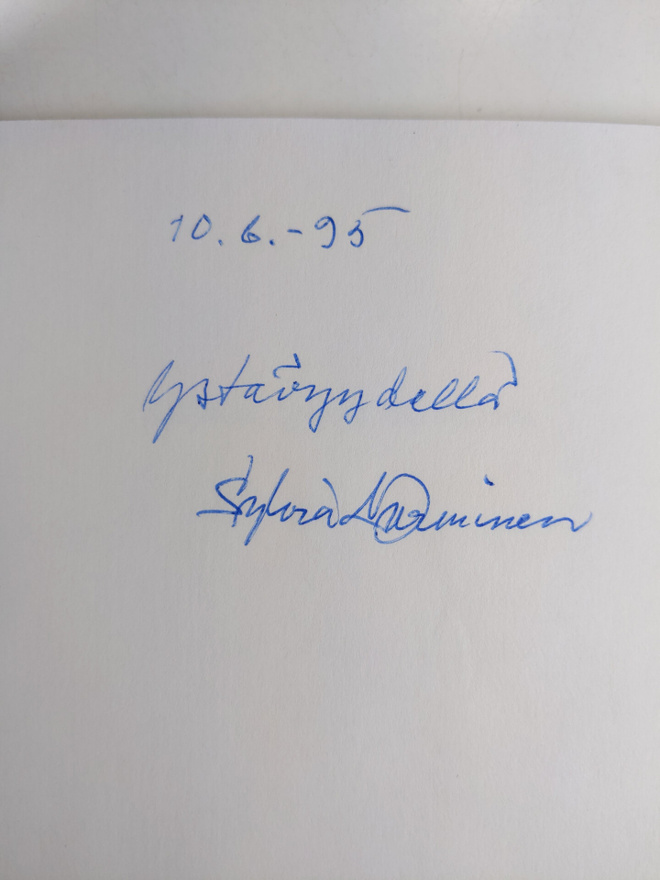 10.6.-95
Ystävyydellä
Sylvia Nurminen